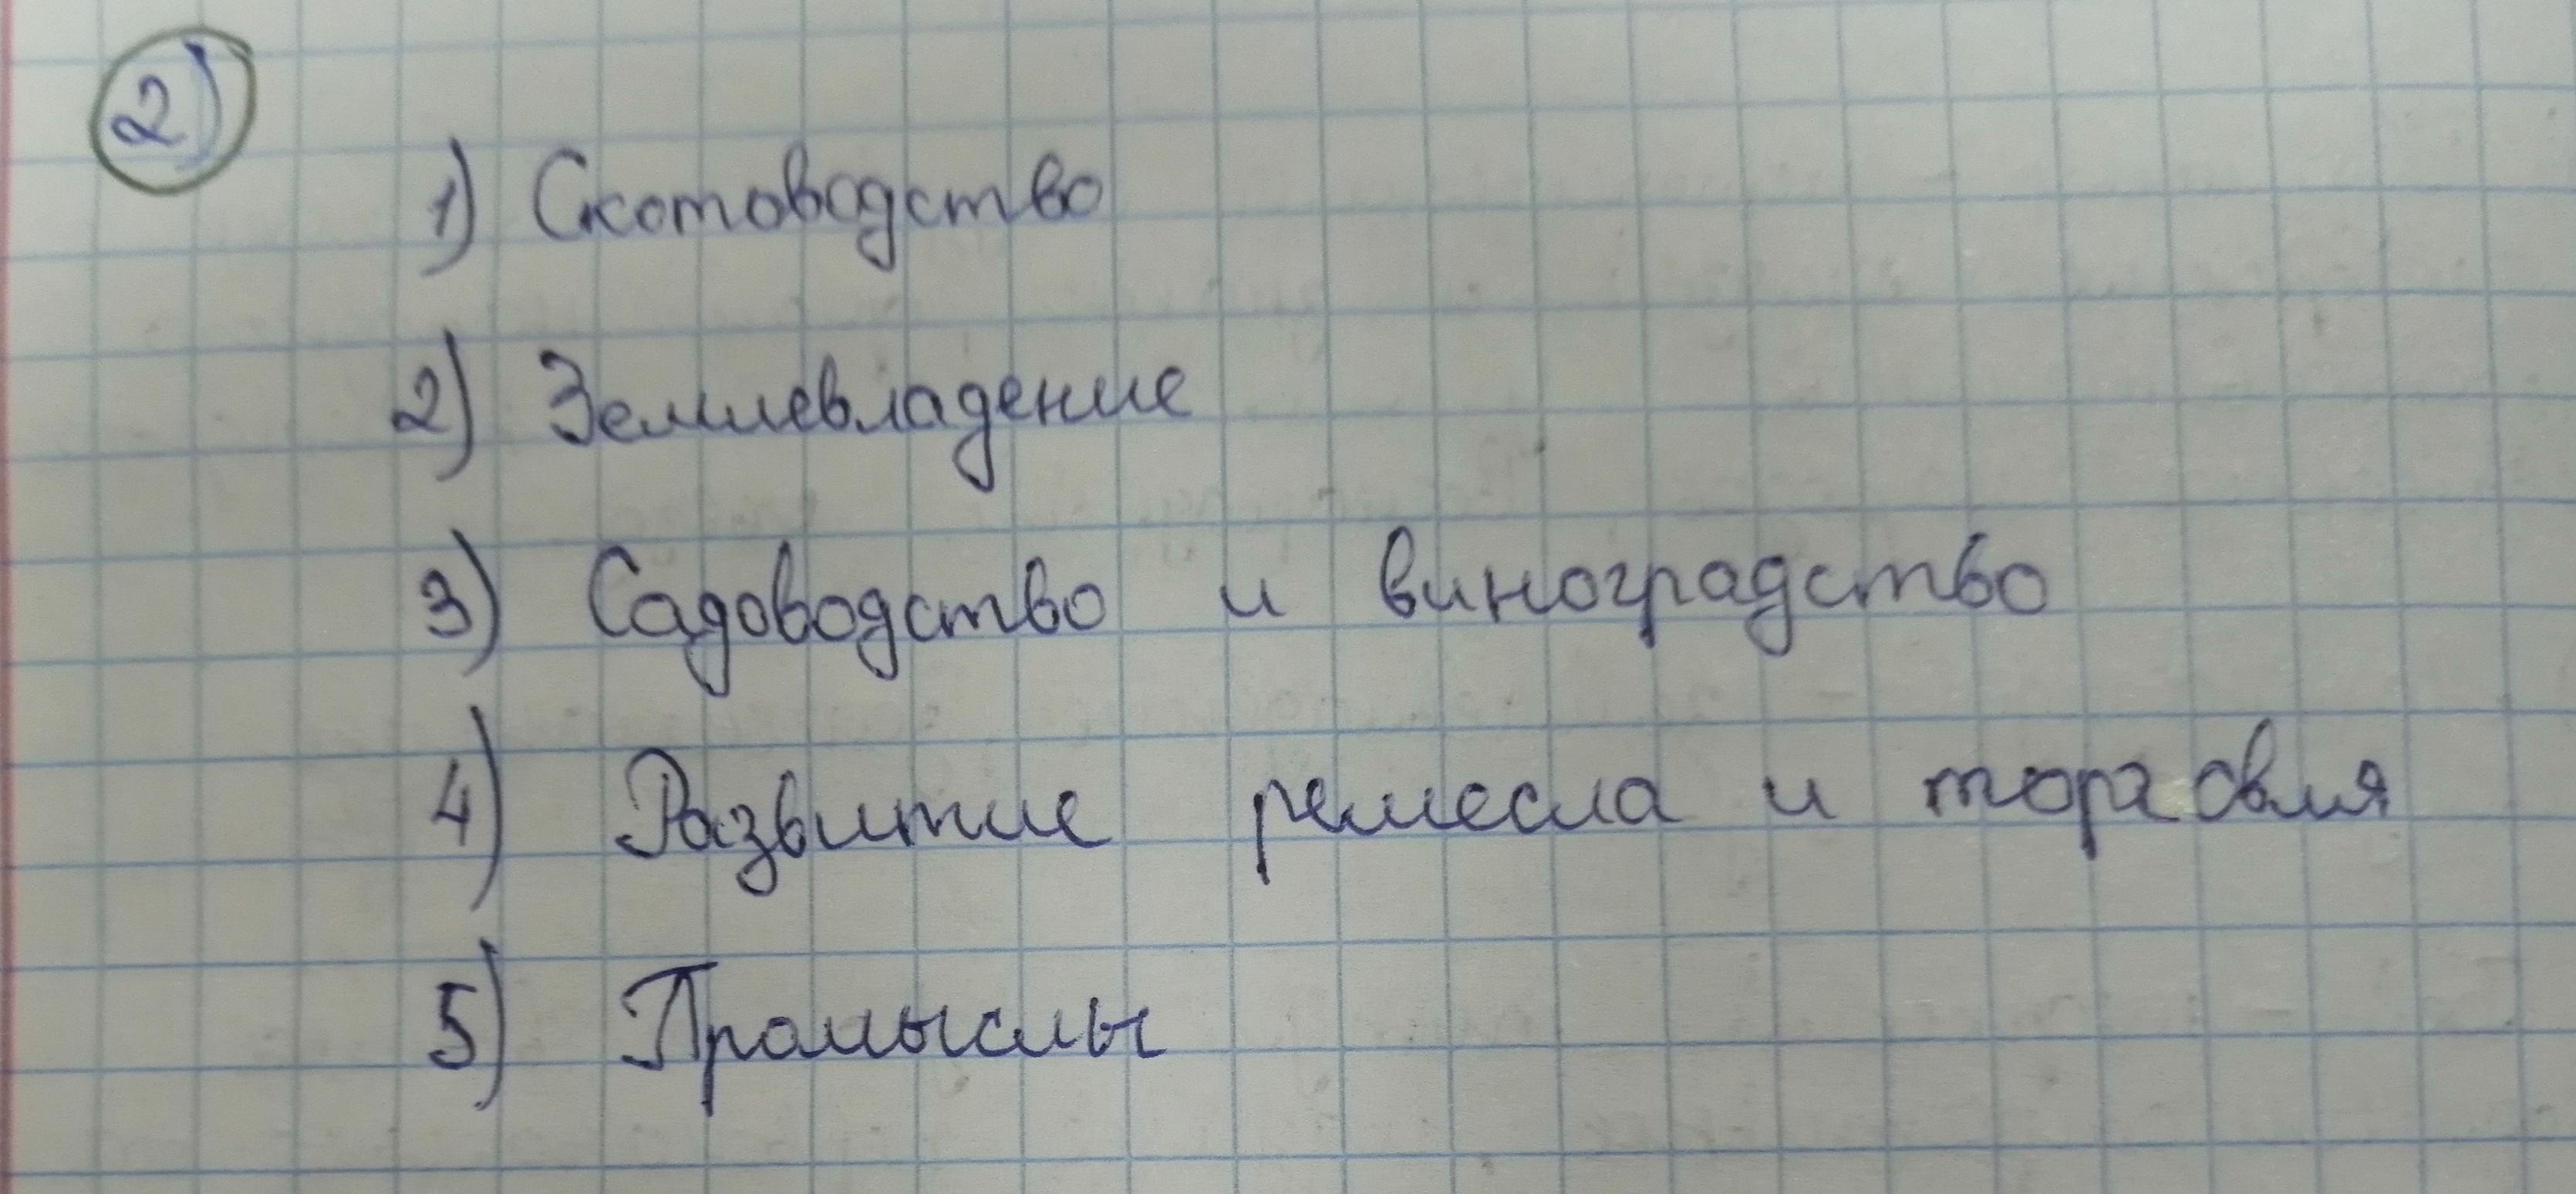 2)
1) Скотоводство
2) Землевладение
3) Садоводство и виноградство
4) Развитие ремесла и торговля
5) Промыслы